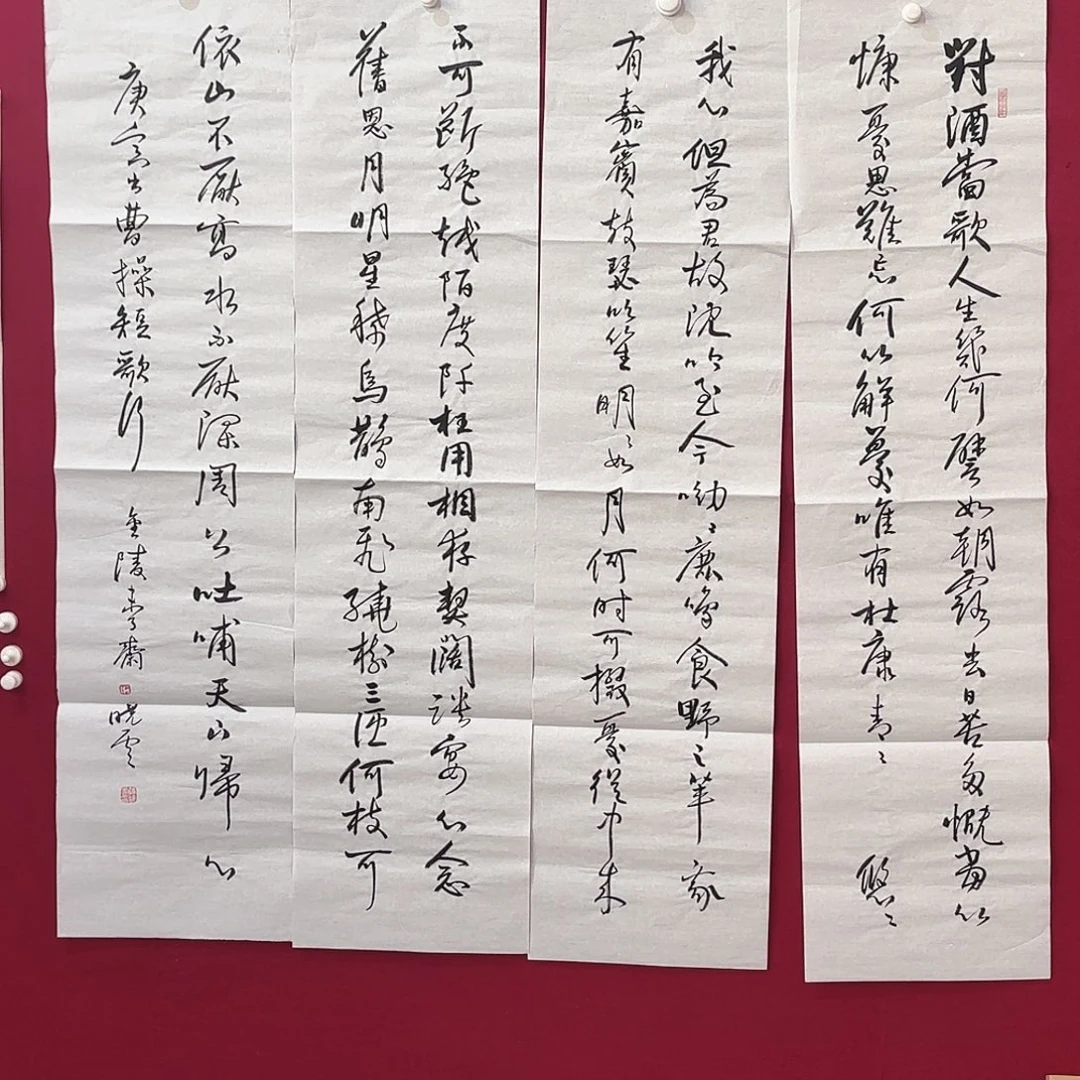 對酒當歌人生幾何譬如朝露去日苦多慨當以
慷憂思難忘何以解憂唯有杜康青〻悠〻
我心但為君故沈吟至今呦〻鹿鳴食野之苹我
有嘉賓鼓瑟吹笙明〻如月何时可掇憂從中来
不可斷絕越陌度阡枉用相存契闊談宴心念
舊恩月明星稀烏鵲南飛繞樹三匝何枝可
依山不厭高水不厭深周公吐哺天下歸心
庚書曹操短歌行
金陵齋曉雲